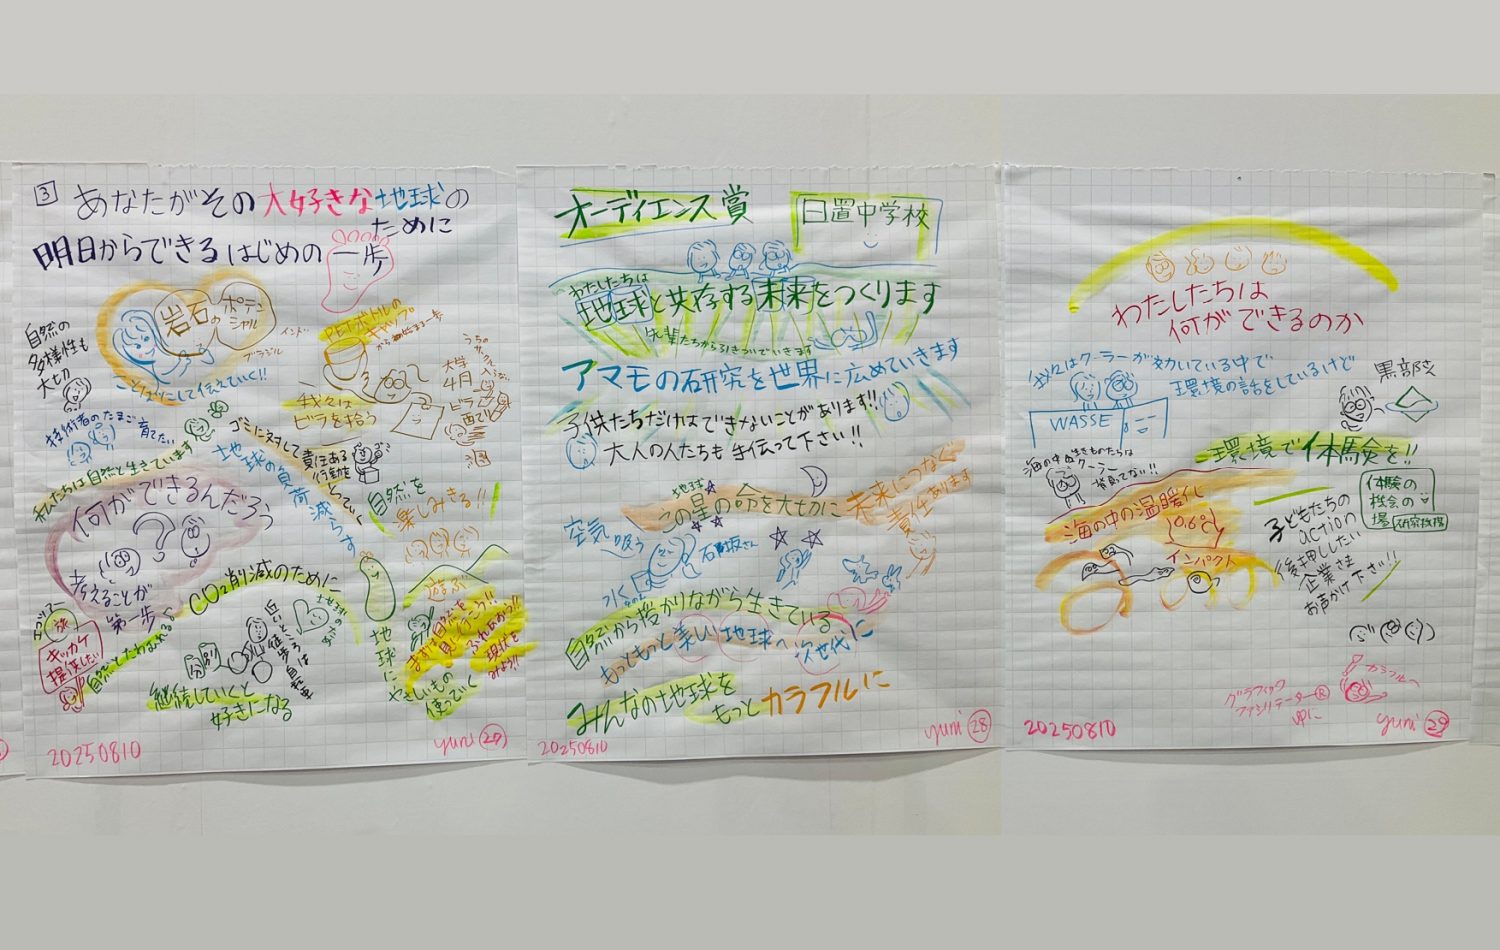 3
あなたがその大好きな地球の
ために
明日からできるはじめの一歩
岩石のポテンシャル
インド
ブラジル
ことばにして伝えていく!!
自然の
多様性も
大切
技術者のたまご育てたい
PETボトルの
キャップ
から始まる一歩
我々は
ビラを拾う
大学
4月
ビラ
ゴミに対して
責任ある
行動を
とっていく
地球の負荷減らす
私たちは自然と生きています
何ができるんだろう
考えることが
第一歩
自然を
楽しみきる!!
遊ぶ
CO2削減のために
エコツアー
旅
キッカケ
提供したい
自然とたわむれる
分別
近いところは
徒歩
自転車
継続していくと
好きになる
地球に
やさしいもの
使っていく
まずは自然を
見に行こう!!
ふれあおう!!
現状を
みよう!!
20250810
yuni 27
オーディエンス賞
日置中学校
わたしたちは
地球と共存する未来をつくります
先輩たちから引きついでいきます
アマモの研究を世界に広めていきます
子供たちだけはできないことがあります!!
大人の人たちも手伝って下さい!!
地球
この星の命を大切に
未来につなぐ
責任あります
空気
吸う
石垣坂さん
自然から授かりながら生きている
もっともっと美しい地球へ次世代に
みんなの地球を
もっとカラフルに
20250810
yuni 28
わたしたちは
何ができるのか
我々はクーラーが効いている中で
環境の話をしているけど
WASSE
黒部さん
海の中の生きものたちは
クーラー
背負ってない!!
環境で体験を!!
海の中の温暖化
0.6℃
インパクト
体験の
機会の
場
研究機関
子どもたちの
action
後押ししたい
企業さま
お声かけ下さい!!
グラフィック
ファシリテーター®
ゆに
カラフルへ
20250810
yuni 29